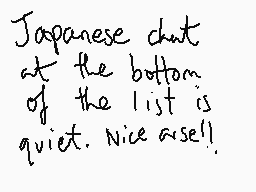 Japanese chat
at the bottom
of the list is
quiet. Nice arse!!